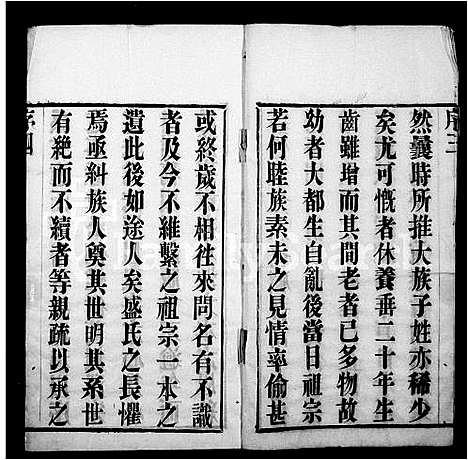 序三
然曩時所推大族子姓亦稀少
矣尤可慨者休養垂二十年生
齒雖增而其間老者已多物故
幼者大都生自亂後當日祖宗
若何睦族素未之見情率偷甚
或終歲不相徃來問名有不識
者及今不維繫之祖宗一本之
遺此後如途人矣盛氏之長懼
焉亟糾族人奠其世明其系世
有絶而不續者等親疏以承之
序四